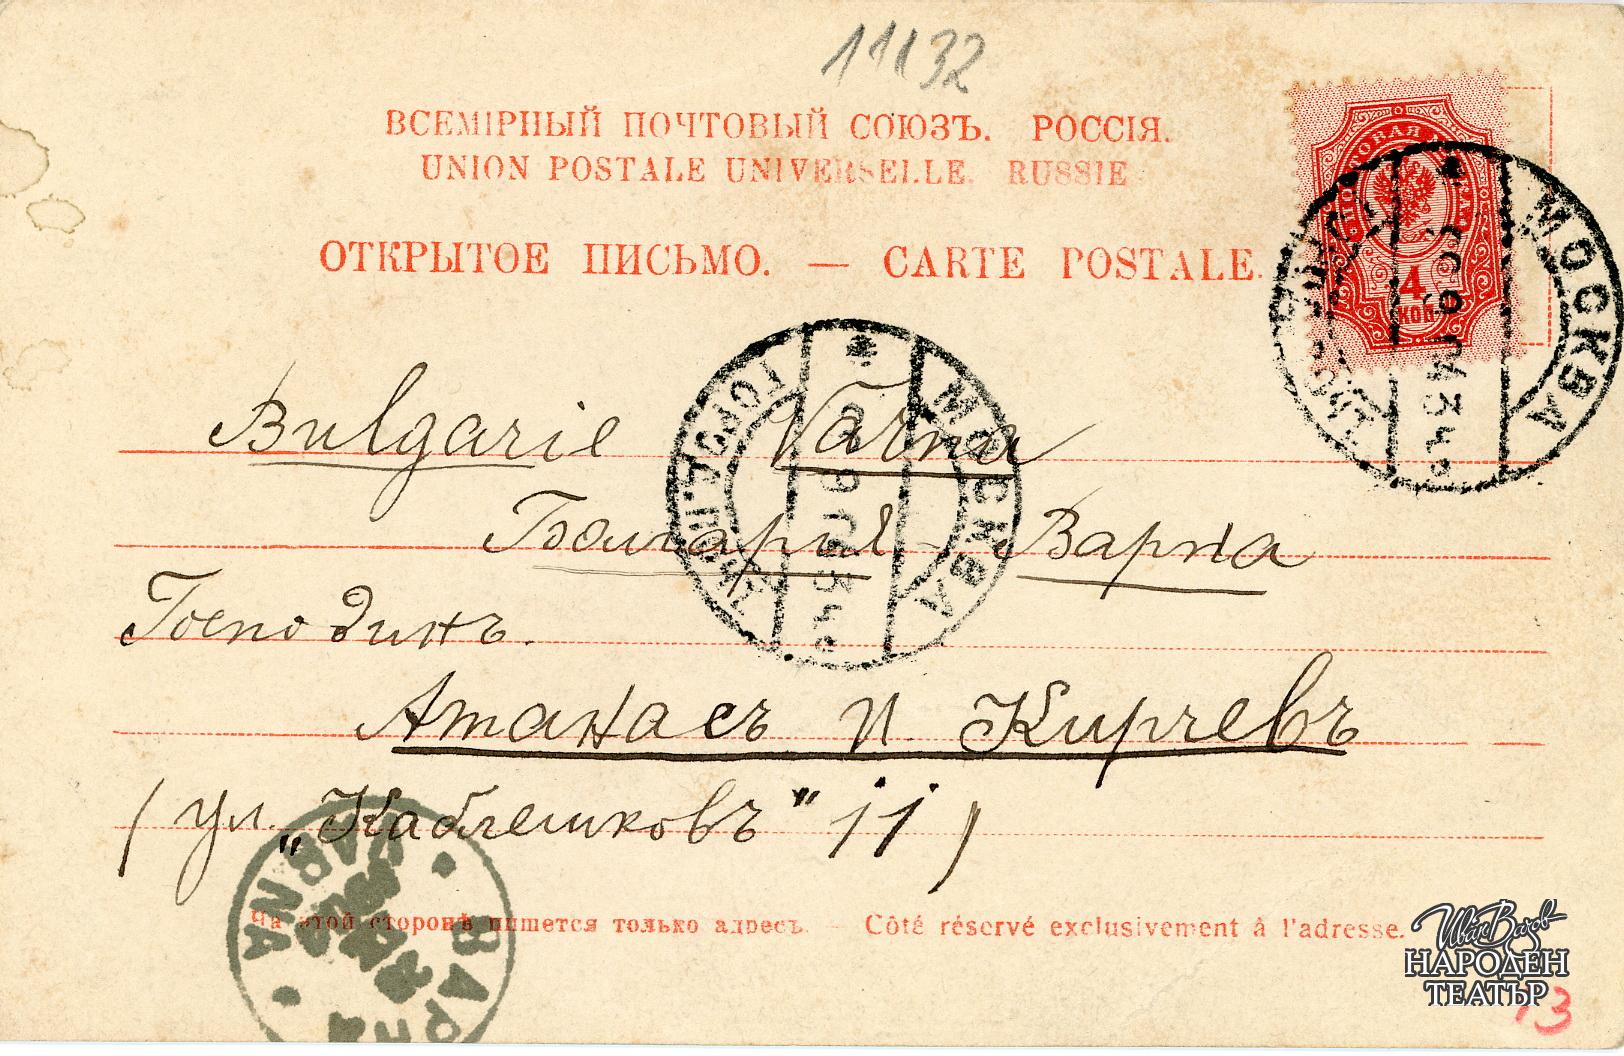 11132
ВСЕМІРНЫЙ ПОЧТОВЫЙ СОЮЗЪ. РОССІЯ.
UNION POSTALE UNIVERSELLE. RUSSIE
ОТКРЫТОЕ ПИСЬМО. — CARTE POSTALE.
ПОЧТОВАЯ МАРКА
4
КОП
МОСКВА
Bulgarie Varna
МОСКВА
Болгария - Варна
Господинъ.
Атанасъ И. Кирчевъ
(ул. „Каблешковъ" 11)
На этой сторонѣ пишется только адресъ. – Côté réservé exclusivement à l'adresse.
ВАРНА
VARNA
Иван Вазов
НАРОДЕН
ТЕАТЪР
13